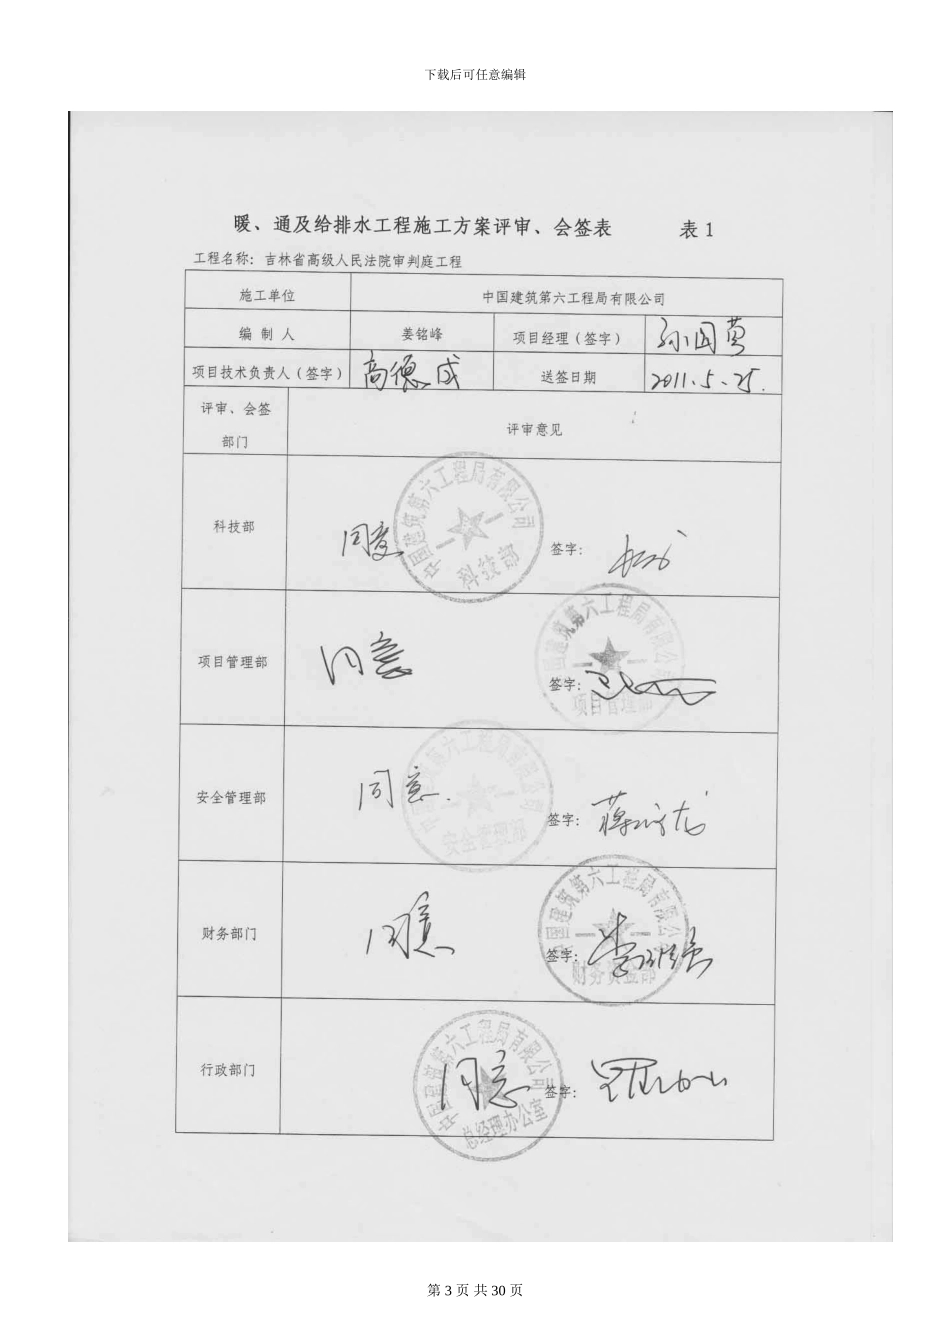 下载后可任意编辑
暖、通及给排水工程施工方案评审、会签表 表1
工程名称：吉林省高级人民法院审判庭工程
施工单位 中国建筑第六工程局有限公司
编 制 人 姜铭峰 项目经理（签字）
项目技术负责人（签字） 高德成 送签日期 2011.5.25.
评审、会签
部门
评审意见
中国建筑第六工程局有限公司
科技部 同意 签字：
科技部
中国建筑第六工程局有限公司
项目管理部 同意 签字：
项目管理部
中国建筑第六工程局有限公司
安全管理部 同意. 签字：
安全管理部
中国建筑第六工程局有限公司
财务部门 同意 签字：
财务资金部
中国建筑第六工程局有限公司
行政部门 同意 签字：
总经理办公室
第 3 页 共 30 页